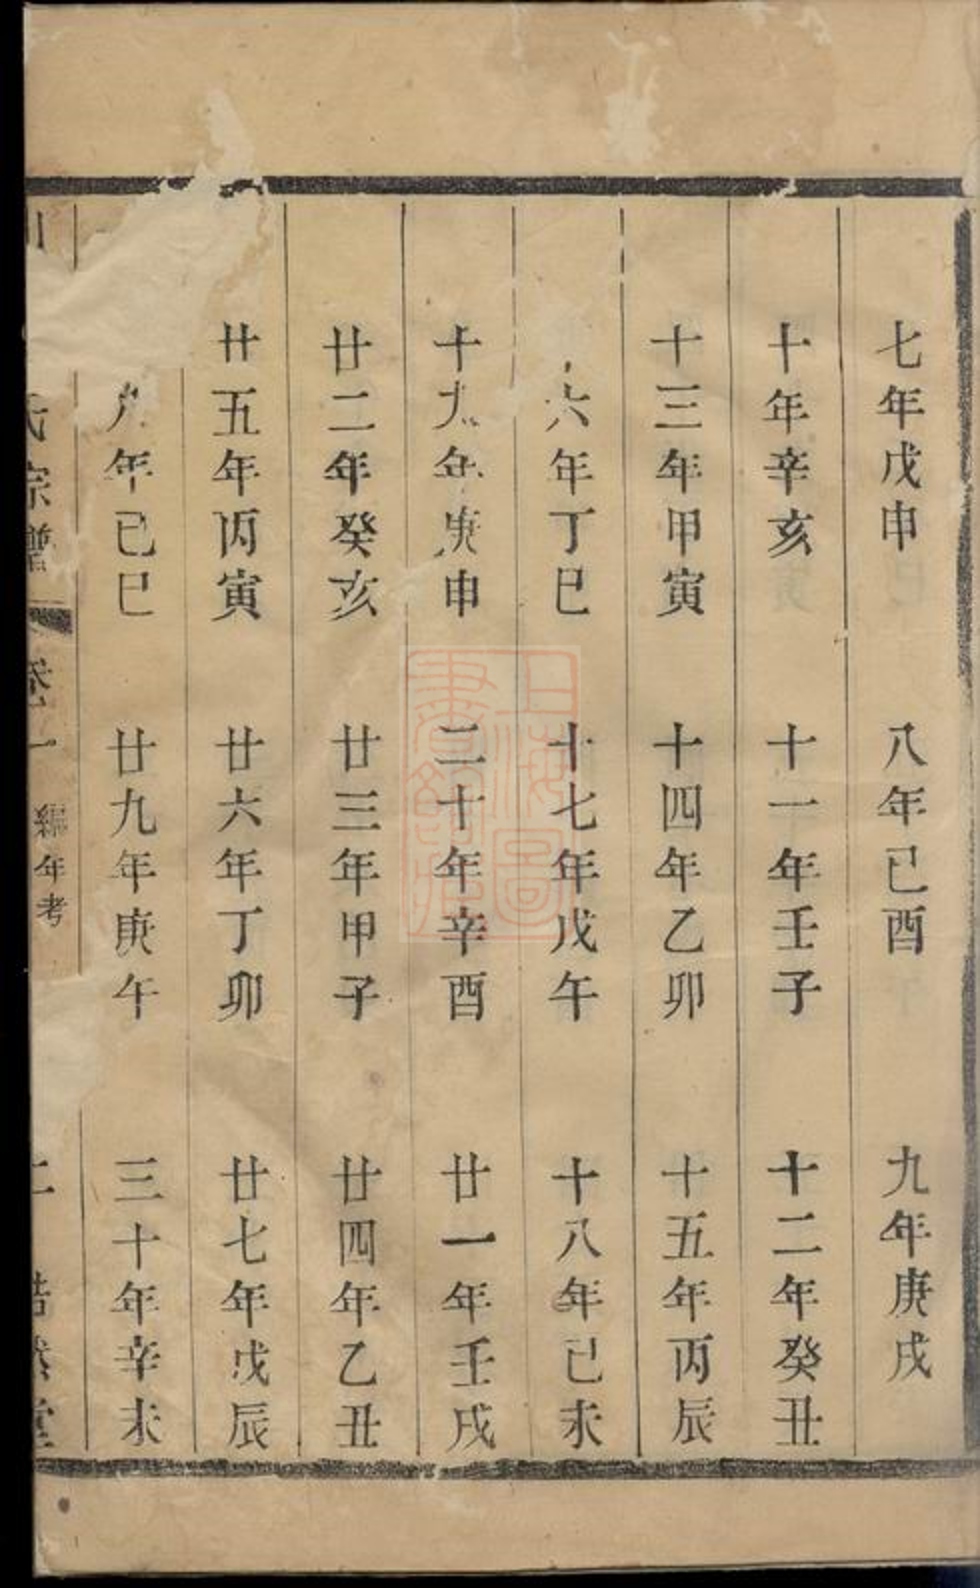 七年戊申 八年己酉 九年庚戌
十年辛亥 十一年壬子 十二年癸丑
十三年甲寅 十四年乙卯 十五年丙辰
六年丁巳 十七年戊午 十八年己未
十九年庚申 二十年辛酉 廿一年壬戌
廿二年癸亥 廿三年甲子 廿四年乙丑
廿五年丙寅 廿六年丁卯 廿七年戊辰
年己巳 廿九年庚午 三十年辛未
氏宗譜 卷一 編年考 堂
上海圖書館藏